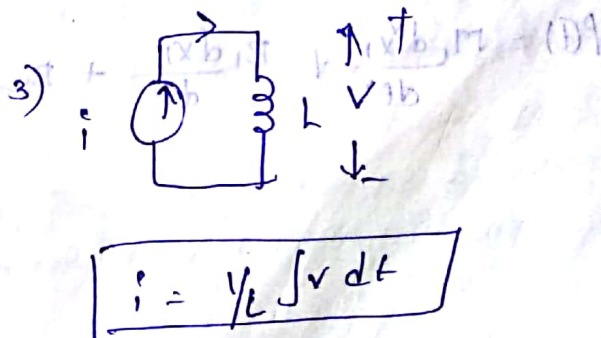 3) i L + V -
i = 1/L ∫v dt